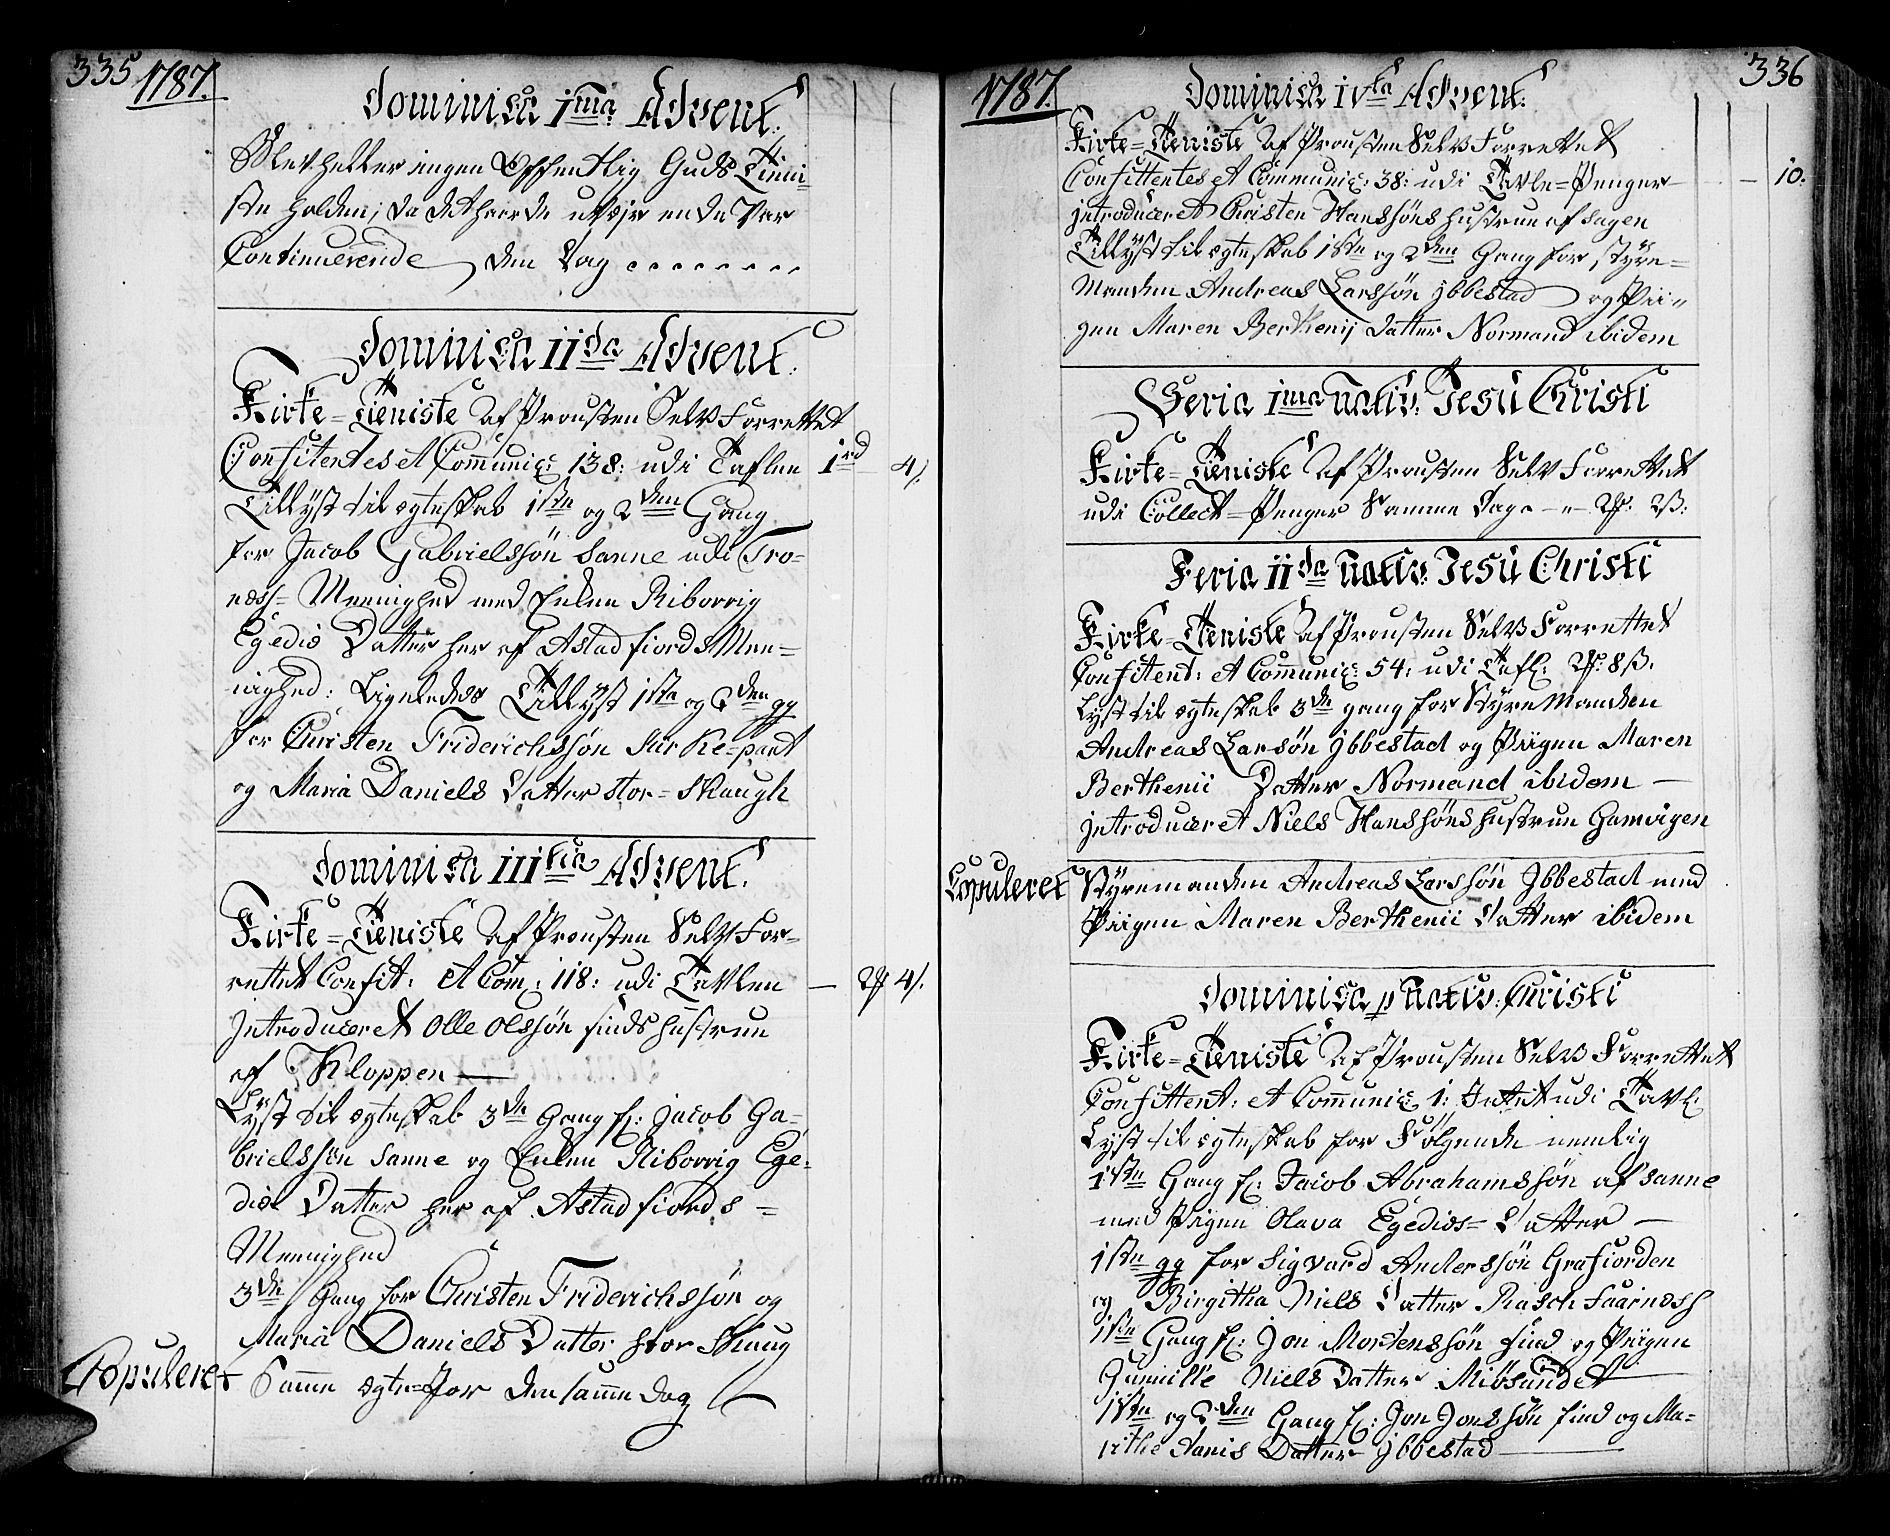 335 1787.
Dominica 1ma Advent:
Blev heller ingen Offentlig Guds Tieni-
ste holden; da det haarde uVejr ende Var
Continuerende den Dag
Dominica IIda Advent:
Kirke=Tieniste Af Prousten Selv Forrettet
Confitentes et Communic: 138: udi Taflen 1rd 4/.
Tillyst til ægteskab 1ste og 2den Gang
for Jacob Gabrielssøn Sanne udi Tro-
næss= Meenighed med Enken Riborrig
Egedis Datter her af Astad fiords Mee=
nighed: Ligeledes Tillyst 1ste og 2den gg
for Christen Friderichssøn
og Maria Daniels Datter stor=Skaugh
Dominica IIItia Advent.
Kirke=Tieniste Af Prousten Selv For-
rettet Confit: et Com: 118: udi Tavlen — 2 4/.
Introduceret Olle Olssøn finds hustrue
af Kloppen
Lyst til ægteskab 3de Gang f: Jacob Ga-
brielssøn Sanne og Enken Riborrig Ege-
dis Datter her af Astad fiords=
Meenighed
3de Gang for Christen Friderichssøn og
Maria Daniels Datter stor Skaug
Copuleret Samme ægte=Par den samme dag
1787. 336
Dominica IVta Advent:
Kirke=Tieniste Af Prousten Selv Forrettet
Confittentes et Communic: 38: udi Tavle=Penger — 10.
Introduceret Christen Hanssøns hustrue af Sagen
Tillyst til ægteskab 1ste og 2den Gang for Styre=
Manden Andreas Larssøn Ibbestad og Pii=
gen Maren Berthenij Datter Normand ibidem
Feria 1ma Nativ: Jesu Christi
Kirke=Tieniste Af Prousten Selv Forrettet
udi Collect=Penger Samme Dag 2 2ß:
Feria IIda Nativ: Jesu Christi
Kirke=Tieniste Af Prousten Selv Forrettet
Confitent: et Communic: 54: udi Tafl: 2 8ß.
Lyst til ægteskab 3de gang for Styre Manden
Andreas Larsøn Ibbestad og Piigen Maren
Berthenii Datter Normand ibidem
Introduceret Niels Hanssøns hustrue Gamvigen
Copuleret Styremanden Andreas Larssøn Ibbestad med
Piigen Maren Berthenii Datter ibidem
Dominica p Nativ: Christi
Kirke=Tieniste Af Prousten Selv Forrettet
Confittent: et Communic 1: Intet udi Tavl:
Lyst til ægteskab for Følgende nemlig
1ste Gang f: Jacob Abrahamssøn af Sanne
med Pigen Olava Egedius=Datter
1ste gg for Sigvard Anderssøn Grafiorden
og Birgitha Niels Datter Rasch Faarness
1ste Gang f: Jon Mortenssøn find og Piigen
Gunnille Niels Datter Miøsundet
1ste og 2den Gang f: Jon Jonssøn find og Ma=
rithe Danis Datter Ibbestad